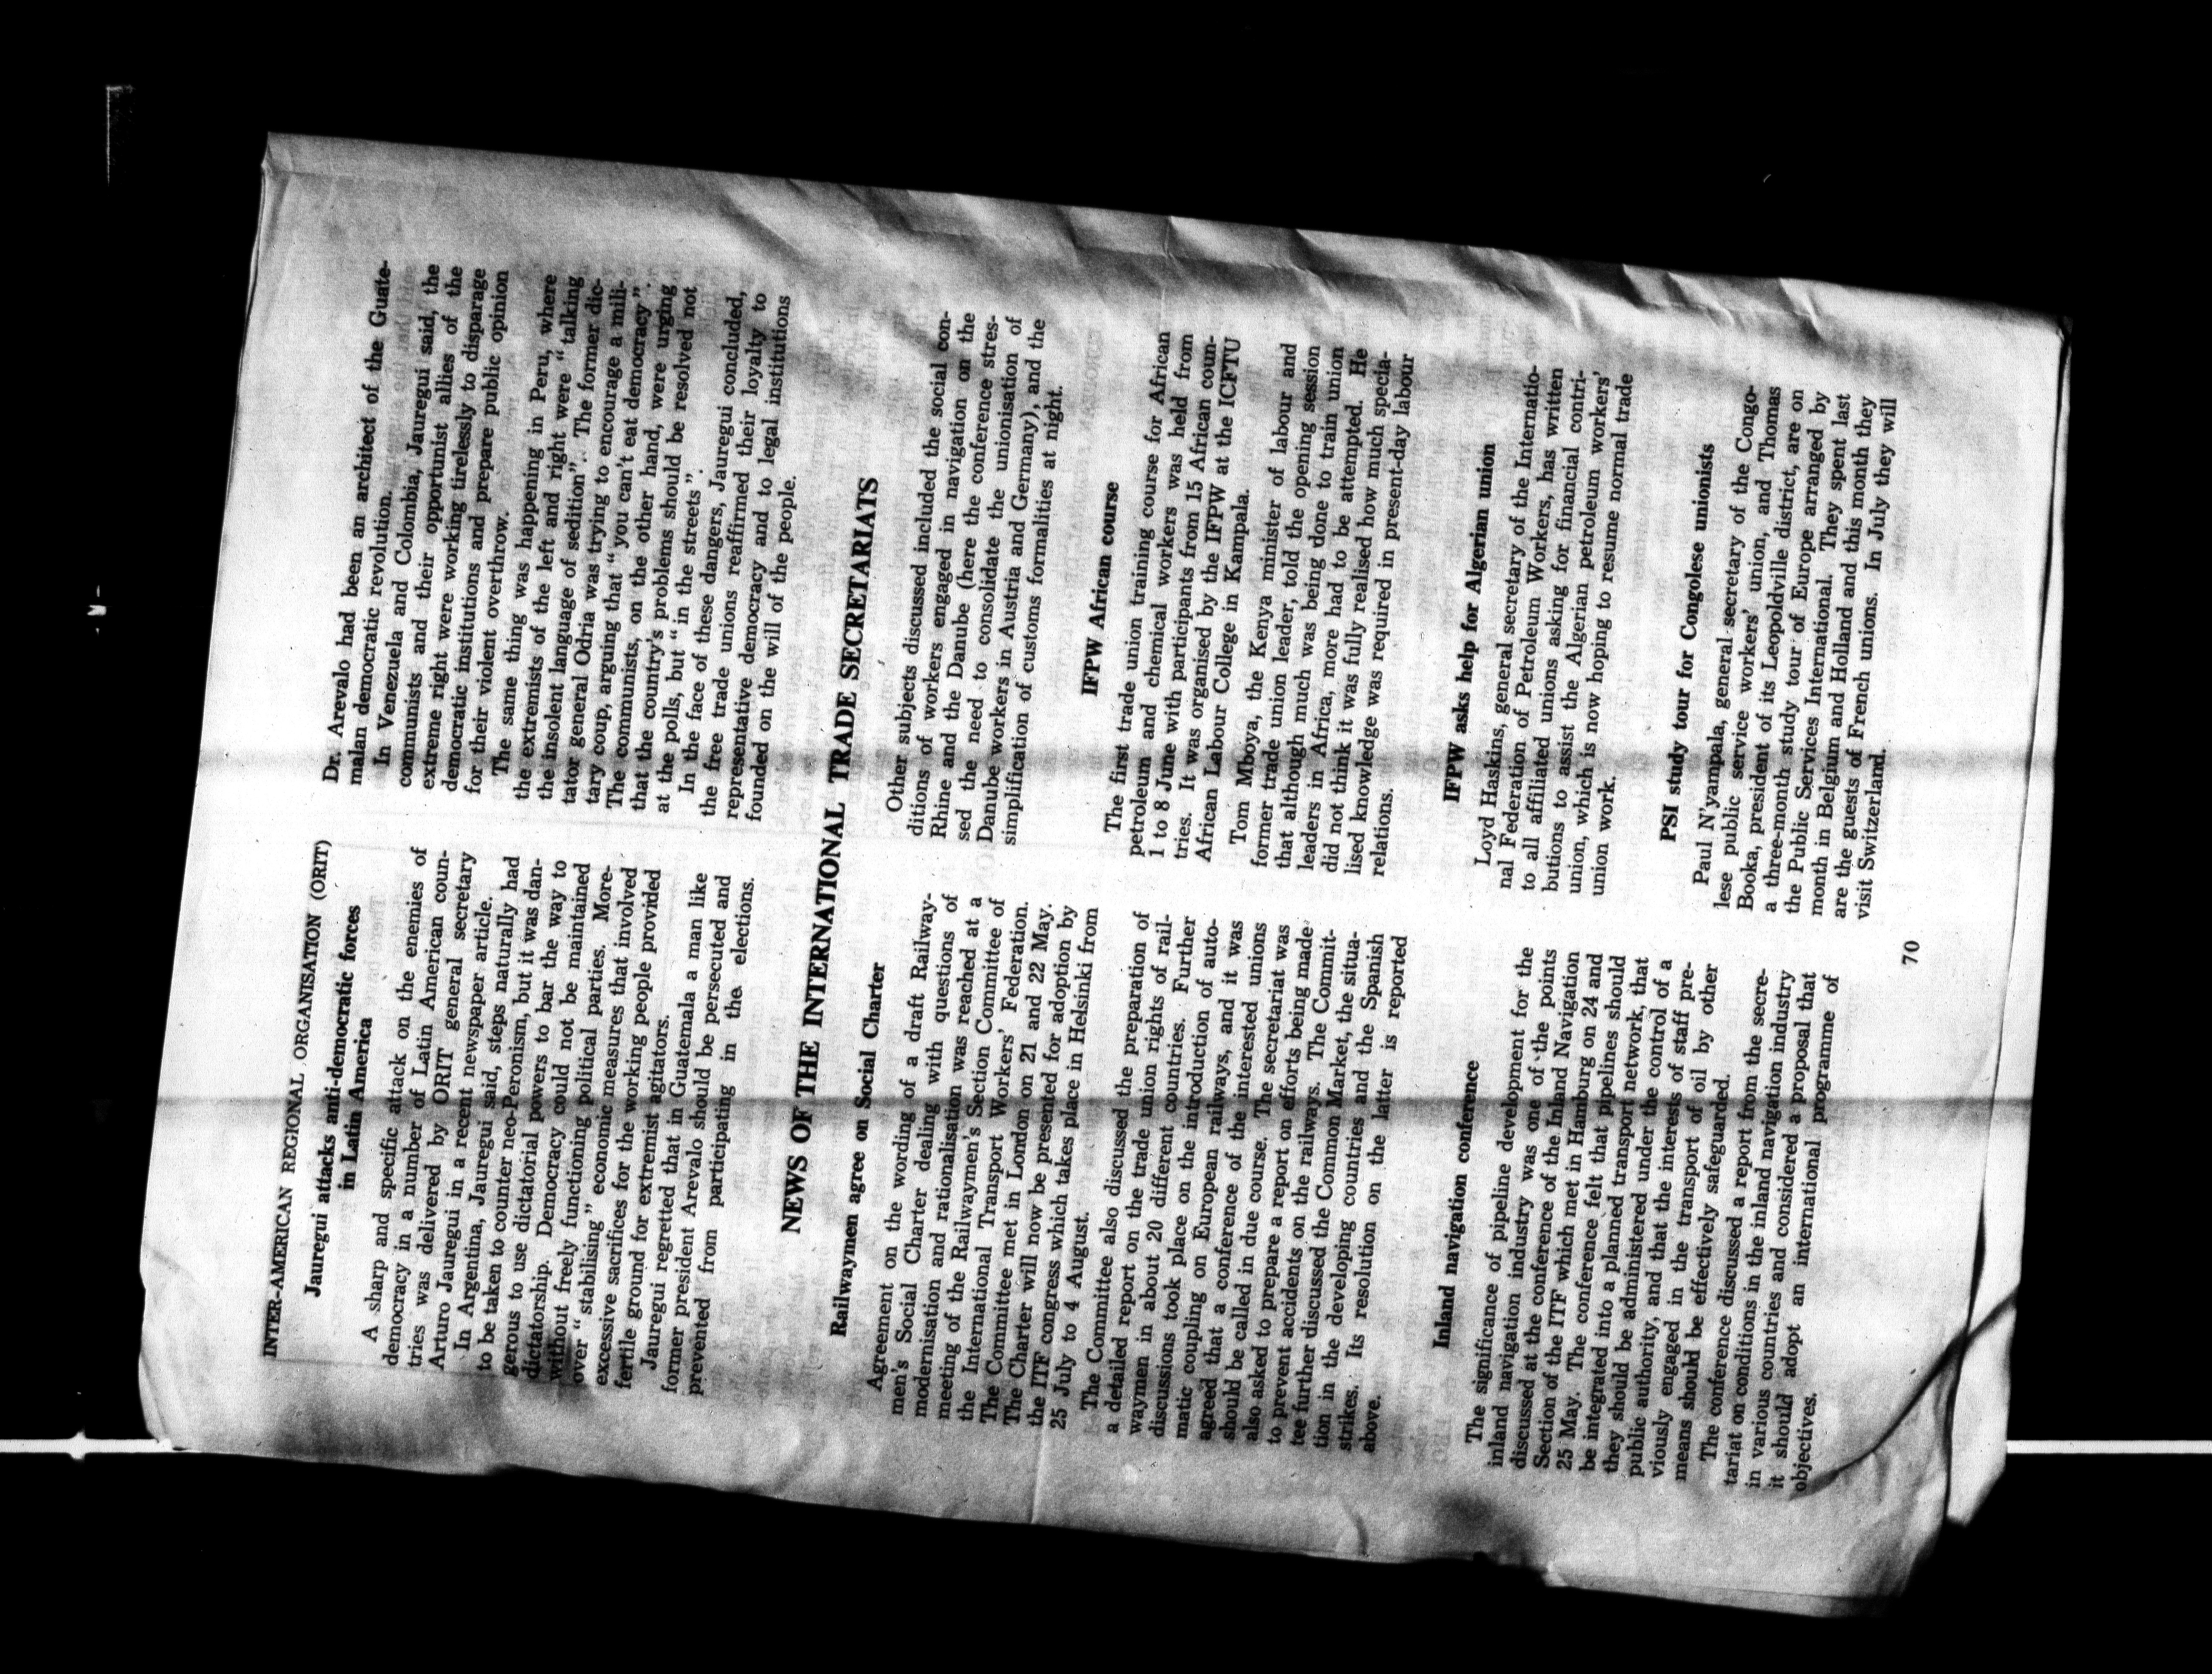 INTER-AMERICAN REGIONAL ORGANISATION (ORIT)
Jauregui attacks anti-democratic forces
in Latin America
A sharp and specific attack on the enemies of
democracy in a number of Latin American coun-
tries was delivered by ORIT general secretary
Arturo Jauregui in a recent newspaper article.
In Argentina, Jauregui said, steps naturally had
to be taken to counter neo-Peronism, but it was dan-
gerous to use dictatorial powers to bar the way to
dictatorship. Democracy could not be maintained
without freely functioning political parties. More-
over “ stabilising ” economic measures that involved
excessive sacrifices for the working people provided
fertile ground for extremist agitators.
Jauregui regretted that in Guatemala a man like
former president Arevalo should be persecuted and
prevented from participating in the elections.
Dr. Arevalo had been an architect of the Guate-
malan democratic revolution.
In Venezuela and Colombia, Jauregui said, the
communists and their opportunist allies of the
extreme right were working tirelessly to disparage
democratic institutions and prepare public opinion
for their violent overthrow.
The same thing was happening in Peru, where
the extremists of the left and right were “ talking
the insolent language of sedition”. The former dic-
tator general Odria was trying to encourage a mili-
tary coup, arguing that “ you can't eat democracy”.
The communists, on the other hand, were urging
that the country's problems should be resolved not
at the polls, but “ in the streets ”.
In the face of these dangers, Jauregui concluded,
the free trade unions reaffirmed their loyalty to
representative democracy and to legal institutions
founded on the will of the people.
NEWS OF THE INTERNATIONAL TRADE SECRETARIATS
Railwaymen agree on Social Charter
Agreement on the wording of a draft Railway-
men's Social Charter dealing with questions of
modernisation and rationalisation was reached at a
meeting of the Railwaymen's Section Committee of
the International Transport Workers' Federation.
The Committee met in London on 21 and 22 May.
The Charter will now be presented for adoption by
the ITF congress which takes place in Helsinki from
25 July to 4 August.
The Committee also discussed the preparation of
a detailed report on the trade union rights of rail-
waymen in about 20 different countries. Further
discussions took place on the introduction of auto-
matic coupling on European railways, and it was
agreed that a conference of the interested unions
should be called in due course. The secretariat was
also asked to prepare a report on efforts being made
to prevent accidents on the railways. The Commit-
tee further discussed the Common Market, the situa-
tion in the developing countries and the Spanish
strikes. Its resolution on the latter is reported
above.
Inland navigation conference
The significance of pipeline development for the
inland navigation industry was one of the points
discussed at the conference of the Inland Navigation
Section of the ITF which met in Hamburg on 24 and
25 May. The conference felt that pipelines should
be integrated into a planned transport network, that
they should be administered under the control of a
public authority, and that the interests of staff pre-
viously engaged in the transport of oil by other
means should be effectively safeguarded.
The conference discussed a report from the secre-
tariat on conditions in the inland navigation industry
in various countries and considered a proposal that
it should adopt an international programme of
objectives.
Other subjects discussed included the social con-
ditions of workers engaged in navigation on the
Rhine and the Danube (here the conference stres-
sed the need to consolidate the unionisation of
Danube workers in Austria and Germany), and the
simplification of customs formalities at night.
IFPW African course
The first trade union training course for African
petroleum and chemical workers was held from
1 to 8 June with participants from 15 African coun-
tries. It was organised by the IFPW at the ICFTU
African Labour College in Kampala.
Tom Mboya, the Kenya minister of labour and
former trade union leader, told the opening session
that although much was being done to train union
leaders in Africa, more had to be attempted. He
did not think it was fully realised how much specia-
lised knowledge was required in present-day labour
relations.
IFPW asks help for Algerian union
Loyd Haskins, general secretary of the Internatio-
nal Federation of Petroleum Workers, has written
to all affiliated unions asking for financial contri-
butions to assist the Algerian petroleum workers'
union, which is now hoping to resume normal trade
union work.
PSI study tour for Congolese unionists
Paul N'yampala, general secretary of the Congo-
lese public service workers' union, and Thomas
Booka, president of its Leopoldville district, are on
a three-month study tour of Europe arranged by
the Public Services International. They spent last
month in Belgium and Holland and this month they
are the guests of French unions. In July they will
visit Switzerland.
70